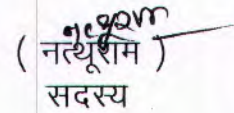 ( नत्थूराम )
सदस्य